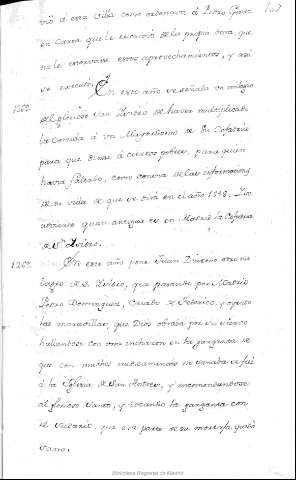 vió á esta Villa como ordenava á Pedro
en Carta que le escrivió de la propia data, que
no le estorvase estos aprovechamientos, y así
se executó. En este año se señala un milagro
del glorioso San Ysidro de haver multiplicado
la comida á un Mayordomo de su Cofradia
para que diese á ciertos pobres, para quien
havia faltado, como consta de las informaciones
de su vida de que se dirá en el año
quan antigua es en Madrid la Cofradia
de Sn. Ysidro.
En este año pone Juan Diacono otro mi
lagro de S. Ysidro, que pasando por Madrid
Pedro Dominguez, Criado de Federico, y oyendo
las maravillas, que Dios obraba por su siervo
hallandose con una inchazon en la garganta de
que con muchos medicamentos no sanaba se fué
á la Yglesia de San Andres, y encomendandose
al glorioso Santo, y tocando la garganta con
el Sudario, que era parte de su mortaja quedó
sano.
Biblioteca Regional de Madrid